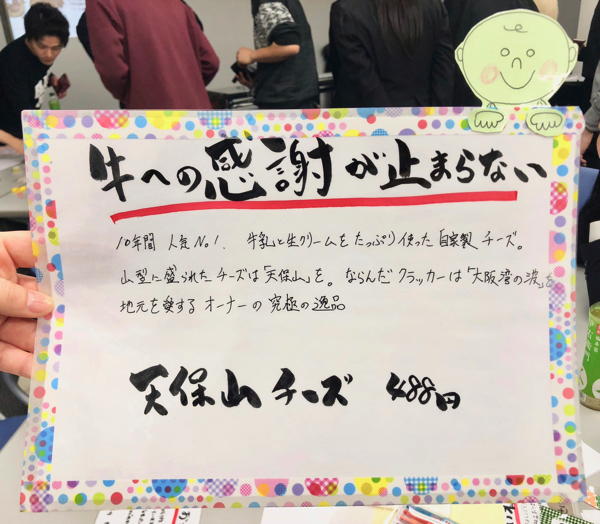 牛への感謝が止まらない
10年間 人気No.1. 牛乳と生クリームをたっぷり使った自家製チーズ。
山型に盛られたチーズは「天保山」を。ならんだクラッカーは「大阪湾の波」を
地元を愛するオーナーの究極の逸品
天保山チーズ 488円